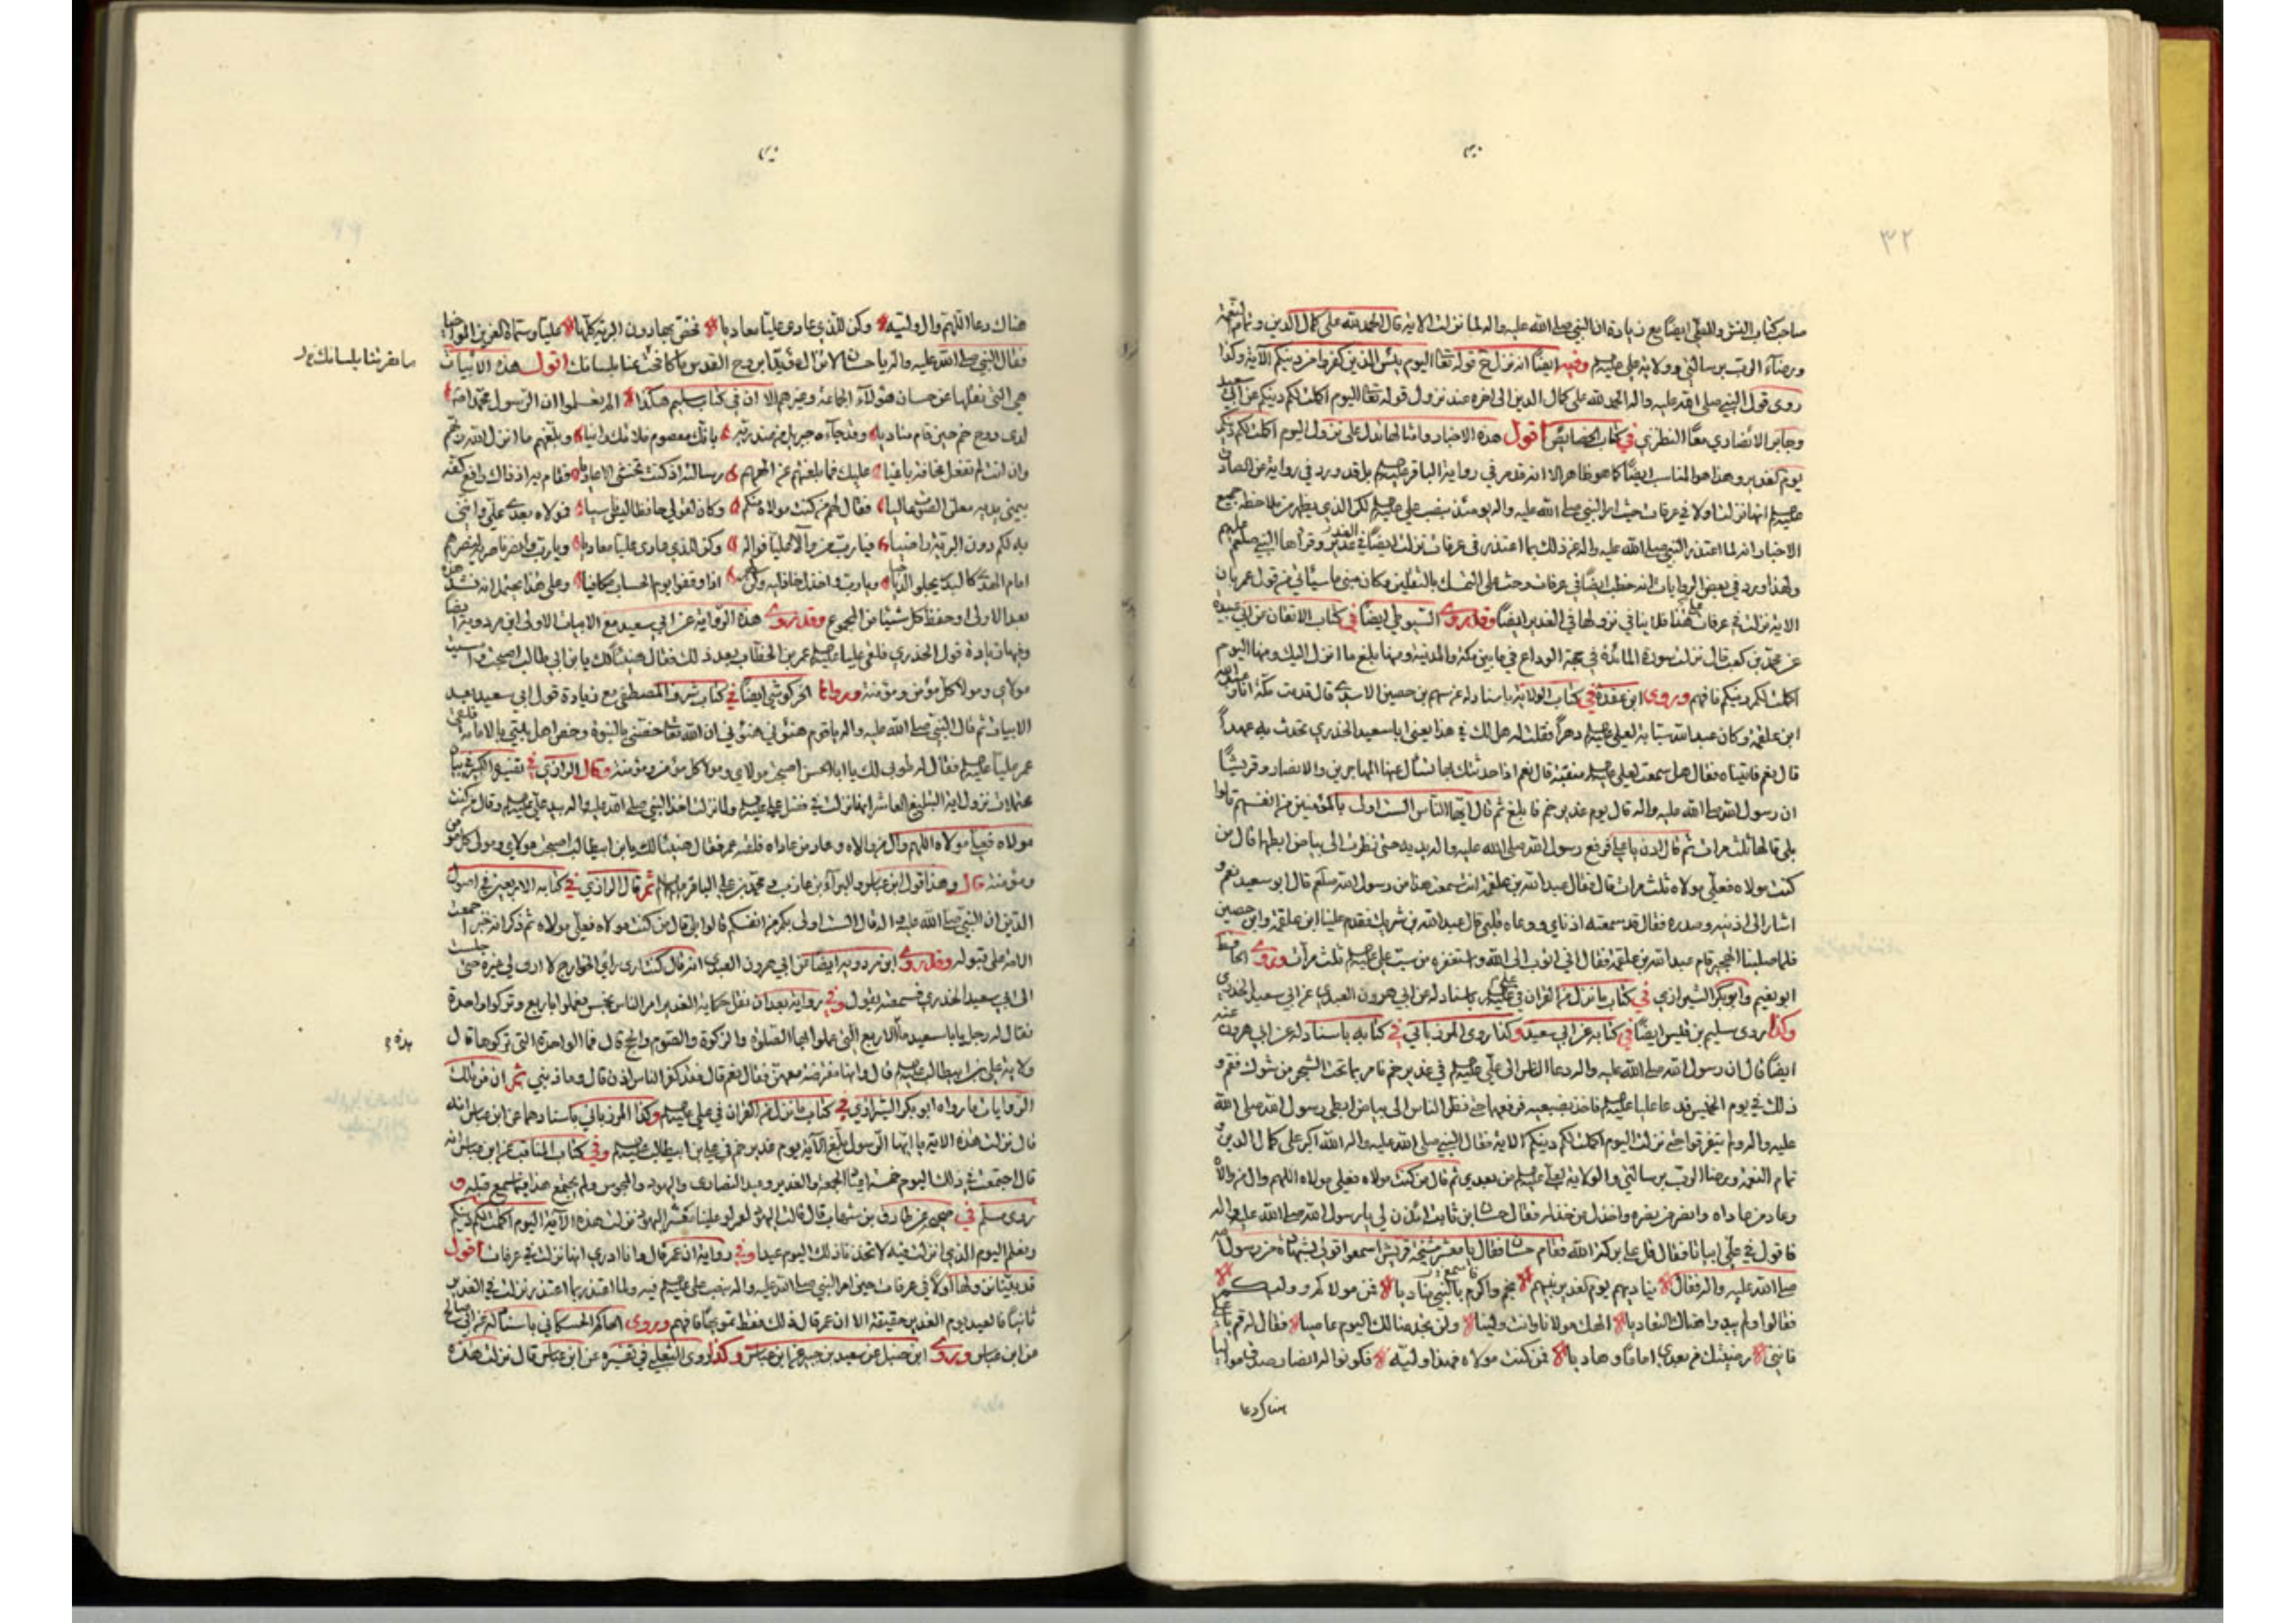 ٣٢
صاحب كتاب النشر والطي ايضا مع زيادة ان النبي صلى الله عليه واله لما نزلت الاية قال الحمد لله على كمال الدين وتمام النعمة
ورضاء الرب برسالتي وولاية علي وفيه ايضا انه نزل قوله تعا اليوم يئس الذين كفروا من دينكم الآية وكذا
روى قول النبي صلى الله عليه واله الحمد لله على كمال الدين الى اخره عند نزول قوله تعا اليوم اكملت لكم دينكم عن ابي سعيد
وجابر الانصاري معا النطنزي في كتاب الخصائص اقول هذه الاخبار وامثالها تدل على نزول اليوم اكملت لكم دينكم
يوم الغدير وهذا هو المناسب ايضا كما هو ظاهر الا انه قد مر في رواية الباقر بل قد ورد في رواية عن الصادق
انها نزلت اولا في عرفات حيث امر النبي صلى الله عليه واله يومئذ بنصب علي لكن الذي يظهر من ملاحظة جميع
الاخبار انه لما اعتذر النبي صلى الله عليه واله عن ذلك بما اعتذر في عرفات نزلت ايضا في الغدير وقرأها النبي صلعم
ولهذا ورد في بعض الروايات انه خطب ايضا في عرفات وحث على التمسك بالثقلين وكان مبنى ما سيأتي من قول عمر بان
الاية نزلت في عرفات على هذا فلا ينافي نزولها في الغدير ايضا وقد روى السيوطي ايضا في كتاب الاتقان عن ابي عبيدة
عن محمد بن كعب قال نزلت سورة المائدة في حجة الوداع فيما بين مكة والمدينة ومنها بلغ ما انزل اليك ومنها اليوم
اكملت لكم دينكم فافهم وروى ابن عقدة في كتاب الولاية باسناد له عن سهم بن حصين الاسدي قال قدمت مكة انا وعبد الله
ابن علقمة وكان عبد الله سبابة لعلي دهرا فقلت له هل لك في هذا يعني ابا سعيد الخدري نحدث به عهدا
قال نعم فاتيناه فقال هل سمعت لعلي منقبة قال نعم اذا حدثتك بها تسأل عنها المهاجرين والانصار وقريشا
ان رسول الله صلى الله عليه واله قال يوم غدير خم فابلغ ثم قال ايها الناس الست اولى بالمؤمنين من انفسهم قالوا
بلى قالها ثلث مرات ثم قال ادن يا علي فرفع رسول الله صلى الله عليه واله يديه حتى نظرت الى بياض ابطيهما قال من
كنت مولاه فعلي مولاه ثلث مرات قال فقال عبد الله بن علقمة انت سمعت هذا من رسول الله صلعم قال ابو سعيد نعم و
اشار الى اذنيه وصدره فقال قد سمعته اذناي ووعاه قلبي قال عبد الله بن شريك فقدم علينا ابن علقمة وابن حصين
فلما صلينا الهجير قام عبد الله بن علقمة فقال اني اتوب الى الله واستغفره من سب علي ثلث مرات وروى الحافظ
ابو نعيم وابو بكر الشيرازي في كتاب ما نزل من القران في علي باسناد له عن ابي هرون العبدي عن ابي سعيد الخدري
وكذا روى سليم بن قيس ايضا في كتابه عن ابي سعيد وكذا روى المرزباني في كتابه باسناد له عن ابي هرون عنه
ايضا قال ان رسول الله صلى الله عليه واله دعا الناس الى علي في غدير خم فامر بما تحت الشجر من شوك فقم و
ذلك في يوم الخميس فدعا عليا فاخذ بضبعيه فرفعهما حتى نظر الناس الى بياض ابطي رسول الله صلى الله
عليه واله ولم يتفرقوا حتى نزلت اليوم اكملت لكم دينكم الاية فقال النبي صلى الله عليه واله الله اكبر على كمال الدين و
تمام النعمة ورضا الرب برسالتي والولاية لعلي من بعدي ثم قال من كنت مولاه فعلي مولاه اللهم وال من والاه
وعاد من عاداه وانصر من نصره واخذل من خذله فقال حسان بن ثابت ائذن لي يا رسول الله صلى الله عليه واله
فاقول في علي ابياتا فقال قل على بركة الله فقام حسان فقال يا معشر مشيخة قريش اسمعوا قولي بشهادة من رسول الله
صلى الله عليه واله فقال يناديهم يوم الغدير نبيهم بخم واكرم بالنبي مناديا فمن مولاكم ووليكم
فقالوا ولم يبدوا هناك التعاديا الهك مولانا وانت ولينا ولن تجد منا لك اليوم عاصيا فقال له قم يا علي
فانني رضيتك من بعدي اماما وهاديا فمن كنت مولاه فهذا وليه فكونوا له انصار صدق مواليا
هناك دعا
هناك دعا اللهم وال وليه وكن للذي عادى عليا معاديا فخص بها دون البرية كلها عليا وسماه العزيز المواخيا
فقال النبي صلى الله عليه واله يا حسان لا تزال مؤيدا بروح القدس ما كافحت عنا بلسانك اقول هذه الابيات
ما نصرتنا بلسانك
هي التي نقلها عن حسان هؤلاء الجماعة وغيرهم الا ان في كتاب سليم هكذا الم تعلموا ان الرسول محمدا
لدى دوح خم حين قام مناديا وقد جاءه جبريل من عند ربه بانك معصوم فلا تك وانيا وبلغهم ما انزل الله ربهم
وان انت لم تفعل وحاذرت باغيا عليك فما بلغتهم عن الههم رسالته ان كنت تخشى الاعاديا فقام به اذ ذاك رافع كفه
بيمنى يديه معلن الصوت عاليا فقال لهم من كنت مولاه منكم وكان لقولي حافظا ليس ناسيا فمولاه بعدي علي وانني
به لكم دون البرية راضيا فيا رب من والى عليا فواله وكن للذي عادى عليا معاديا ويا رب فانصر ناصريه لنصرهم
امام الهدى كالبدر يجلو الدياجيا ويا رب فاخذل خاذليه وكن لهم اذا وقفوا يوم الحساب مكافيا وعلى هذا يحتمل انه انشد هذه
بعد الاولى او حفظ كل شيئا من المجموع وقد روى هذه الرواية عن ابي سعيد مع الابيات الاولى ابن مردويه ايضا
وفيها زيادة قول الخدري فلقي عليا عمر بن الخطاب بعد ذلك فقال هنيئا لك يا ابن ابي طالب اصبحت وامسيت
مولاي ومولا كل مؤمن ومؤمنة ورواها الخركوشي ايضا في كتاب شرف المصطفى مع زيادة قول ابي سعيد بعد
الابيات ثم قال النبي صلى الله عليه واله يا قوم هنئوني هنئوني ان الله تعا خصني بالنبوة وخص اهل بيتي بالامامة فلقي
عمر عليا فقال له طوبى لك يا ابا الحسن اصبحت مولاي ومولا كل مؤمن ومؤمنة وقال الرازي في تفسيره الكبير في بيان
نزول اية التبليغ العاشر انها نزلت في فضل علي ولما نزلت اخذ النبي صلى الله عليه واله بيد علي وقال من كنت
مولاه فعلي مولاه اللهم وال من والاه وعاد من عاداه فلقيه عمر فقال هنيئا لك يا ابن ابيطالب اصبحت مولاي ومولى كل مؤمن
ومؤمنة قال وهذا قول ابن عباس والبراء بن عازب ومحمد بن علي الباقر ثم قال الرازي في كتابه الاربعين في اصول
الدين ان النبي صلى الله عليه واله قال الست اولى بكم من انفسكم قالوا بلى قال من كنت مولاه فعلي مولاه ثم ذكر انه خبر اجمعت
الامة على قبوله وقد روى ابن مردويه ايضا عن ابي هرون العبدي انه قال كنت ارى رأي الخوارج لا ارى لي غيره حتى جلست
الى ابي سعيد الخدري فسمعته يقول وفي رواية بعد ان نقل حكاية الغدير امر الناس بخمس فعملوا باربع وتركوا واحدة
فقال له رجل يا ابا سعيد ما الاربع التي عملوا بها قال الصلوة والزكوة والصوم والحج قال فما الواحدة التي تركوها قال
ولاية علي بن ابيطالب قال وانها مفترضة معهن فقال نعم قال فقد كفر الناس اذن قال وما ذنبي ثم ان من تلك
الروايات ما رواه ابو بكر الشيرازي في كتاب ما نزل من القران في علي وكذا المرزباني باسنادهما عن ابن عباس انه
قال نزلت هذه الاية يا ايها الرسول بلغ الآية يوم غدير خم في علي بن ابيطالب وفي كتاب المناقب عن ابن عباس انه
قال اجتمعت في ذلك اليوم خمسة اعياد الجمعة والغدير وعيد النصارى واليهود والمجوس ولم يجتمع هذا فيما سمع قبله و
روى مسلم في صحيحه عن طارق بن شهاب قال قالت اليهود لعمر لو علينا معشر اليهود نزلت هذه الآية اليوم اكملت لكم دينكم
ونعلم اليوم الذي انزلت فيه لاتخذنا ذلك اليوم عيدا وفي رواية ان عمر قال وانا ادري انها نزلت في عرفات اقول
قد بينا نزولها اولا في عرفات حين امر النبي صلى الله عليه واله بنصب علي فيه ولما اعتذر بما اعتذر نزلت في الغدير
ثانيا فالعيد يوم الغدير حقيقة الا ان عمر قال ذلك فافهم وروى الحاكم الحسكاني باسناد له عن ابي صالح
عن ابن عباس وروى ابن حنبل عن سعيد بن جبير عن ابن عباس وكذا روى الثعلبي في تفسيره عن ابن عباس قال نزلت هذه